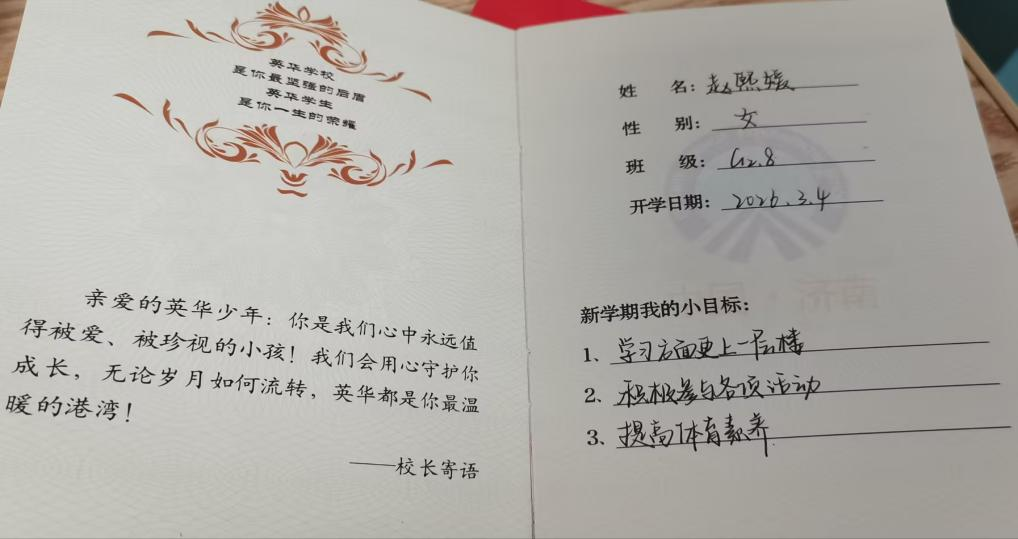 英华学校
是你最坚强的后盾
英华学生
是你一生的荣耀
亲爱的英华少年：你是我们心中永远值
得被爱、被珍视的小孩！我们会用心守护你
成长，无论岁月如何流转，英华都是你最温
暖的港湾！
——校长寄语
姓 名：赵熙媛
性 别：女
班 级：G2.8
开学日期：2026.3.4
新学期我的小目标：
1、学习方面更上一层楼
2、积极参与各项活动
3、提高体育素养